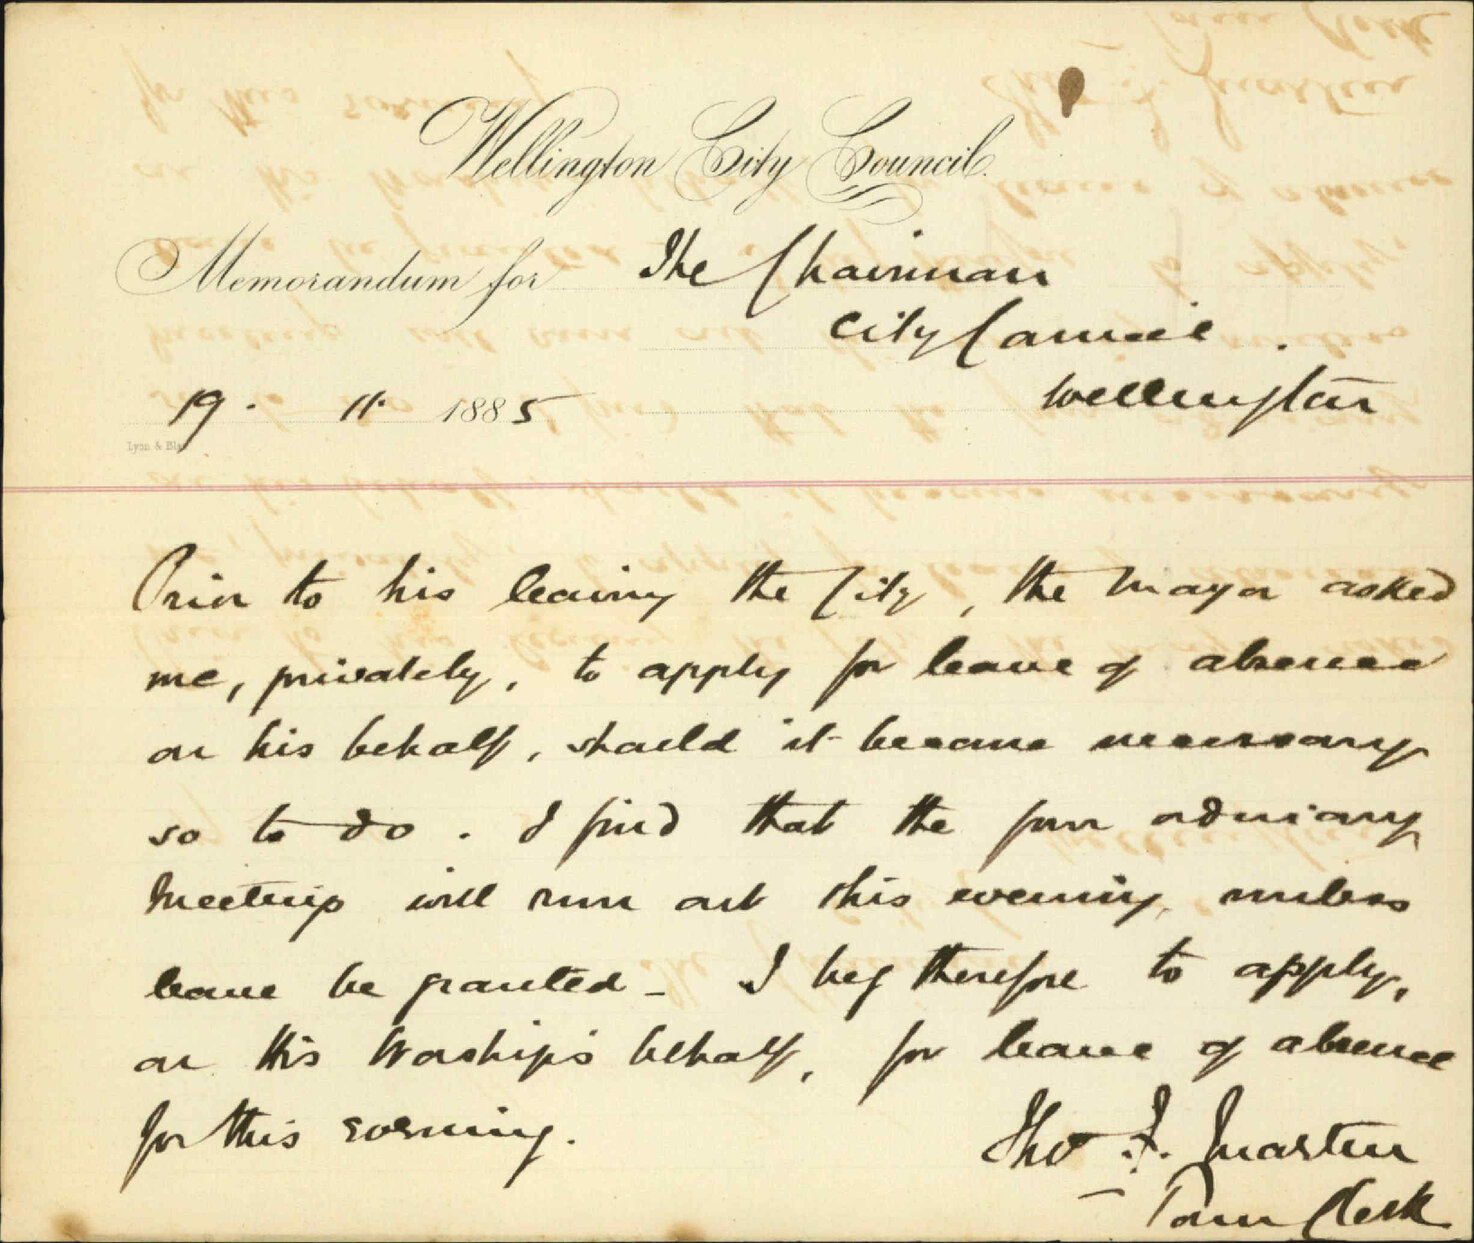 Wellington City Council.
Memorandum for The Chairman
City Council.
19. 11. 1885 Wellington
Lyon & Bla
Prior to his leaving the City, the Mayor asked
me, privately, to apply for leave of absence
on his behalf, should it become necessary
so to do. I find that the four ordinary
Meetings will run out this evening, unless
leave be granted - I beg therefore to apply,
on His Worship's behalf, for leave of absence
for this evening.
Tho F. Martin
- Town Clerk